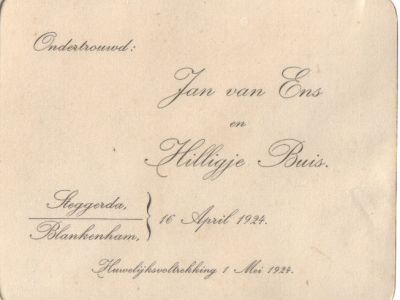 Ondertrouwd:
Jan van Ens
en
Hilligje Buis.
Steggerda,
Blankenham,
16 April 1924.
Huwelijksvoltrekking 1 Mei 1924.